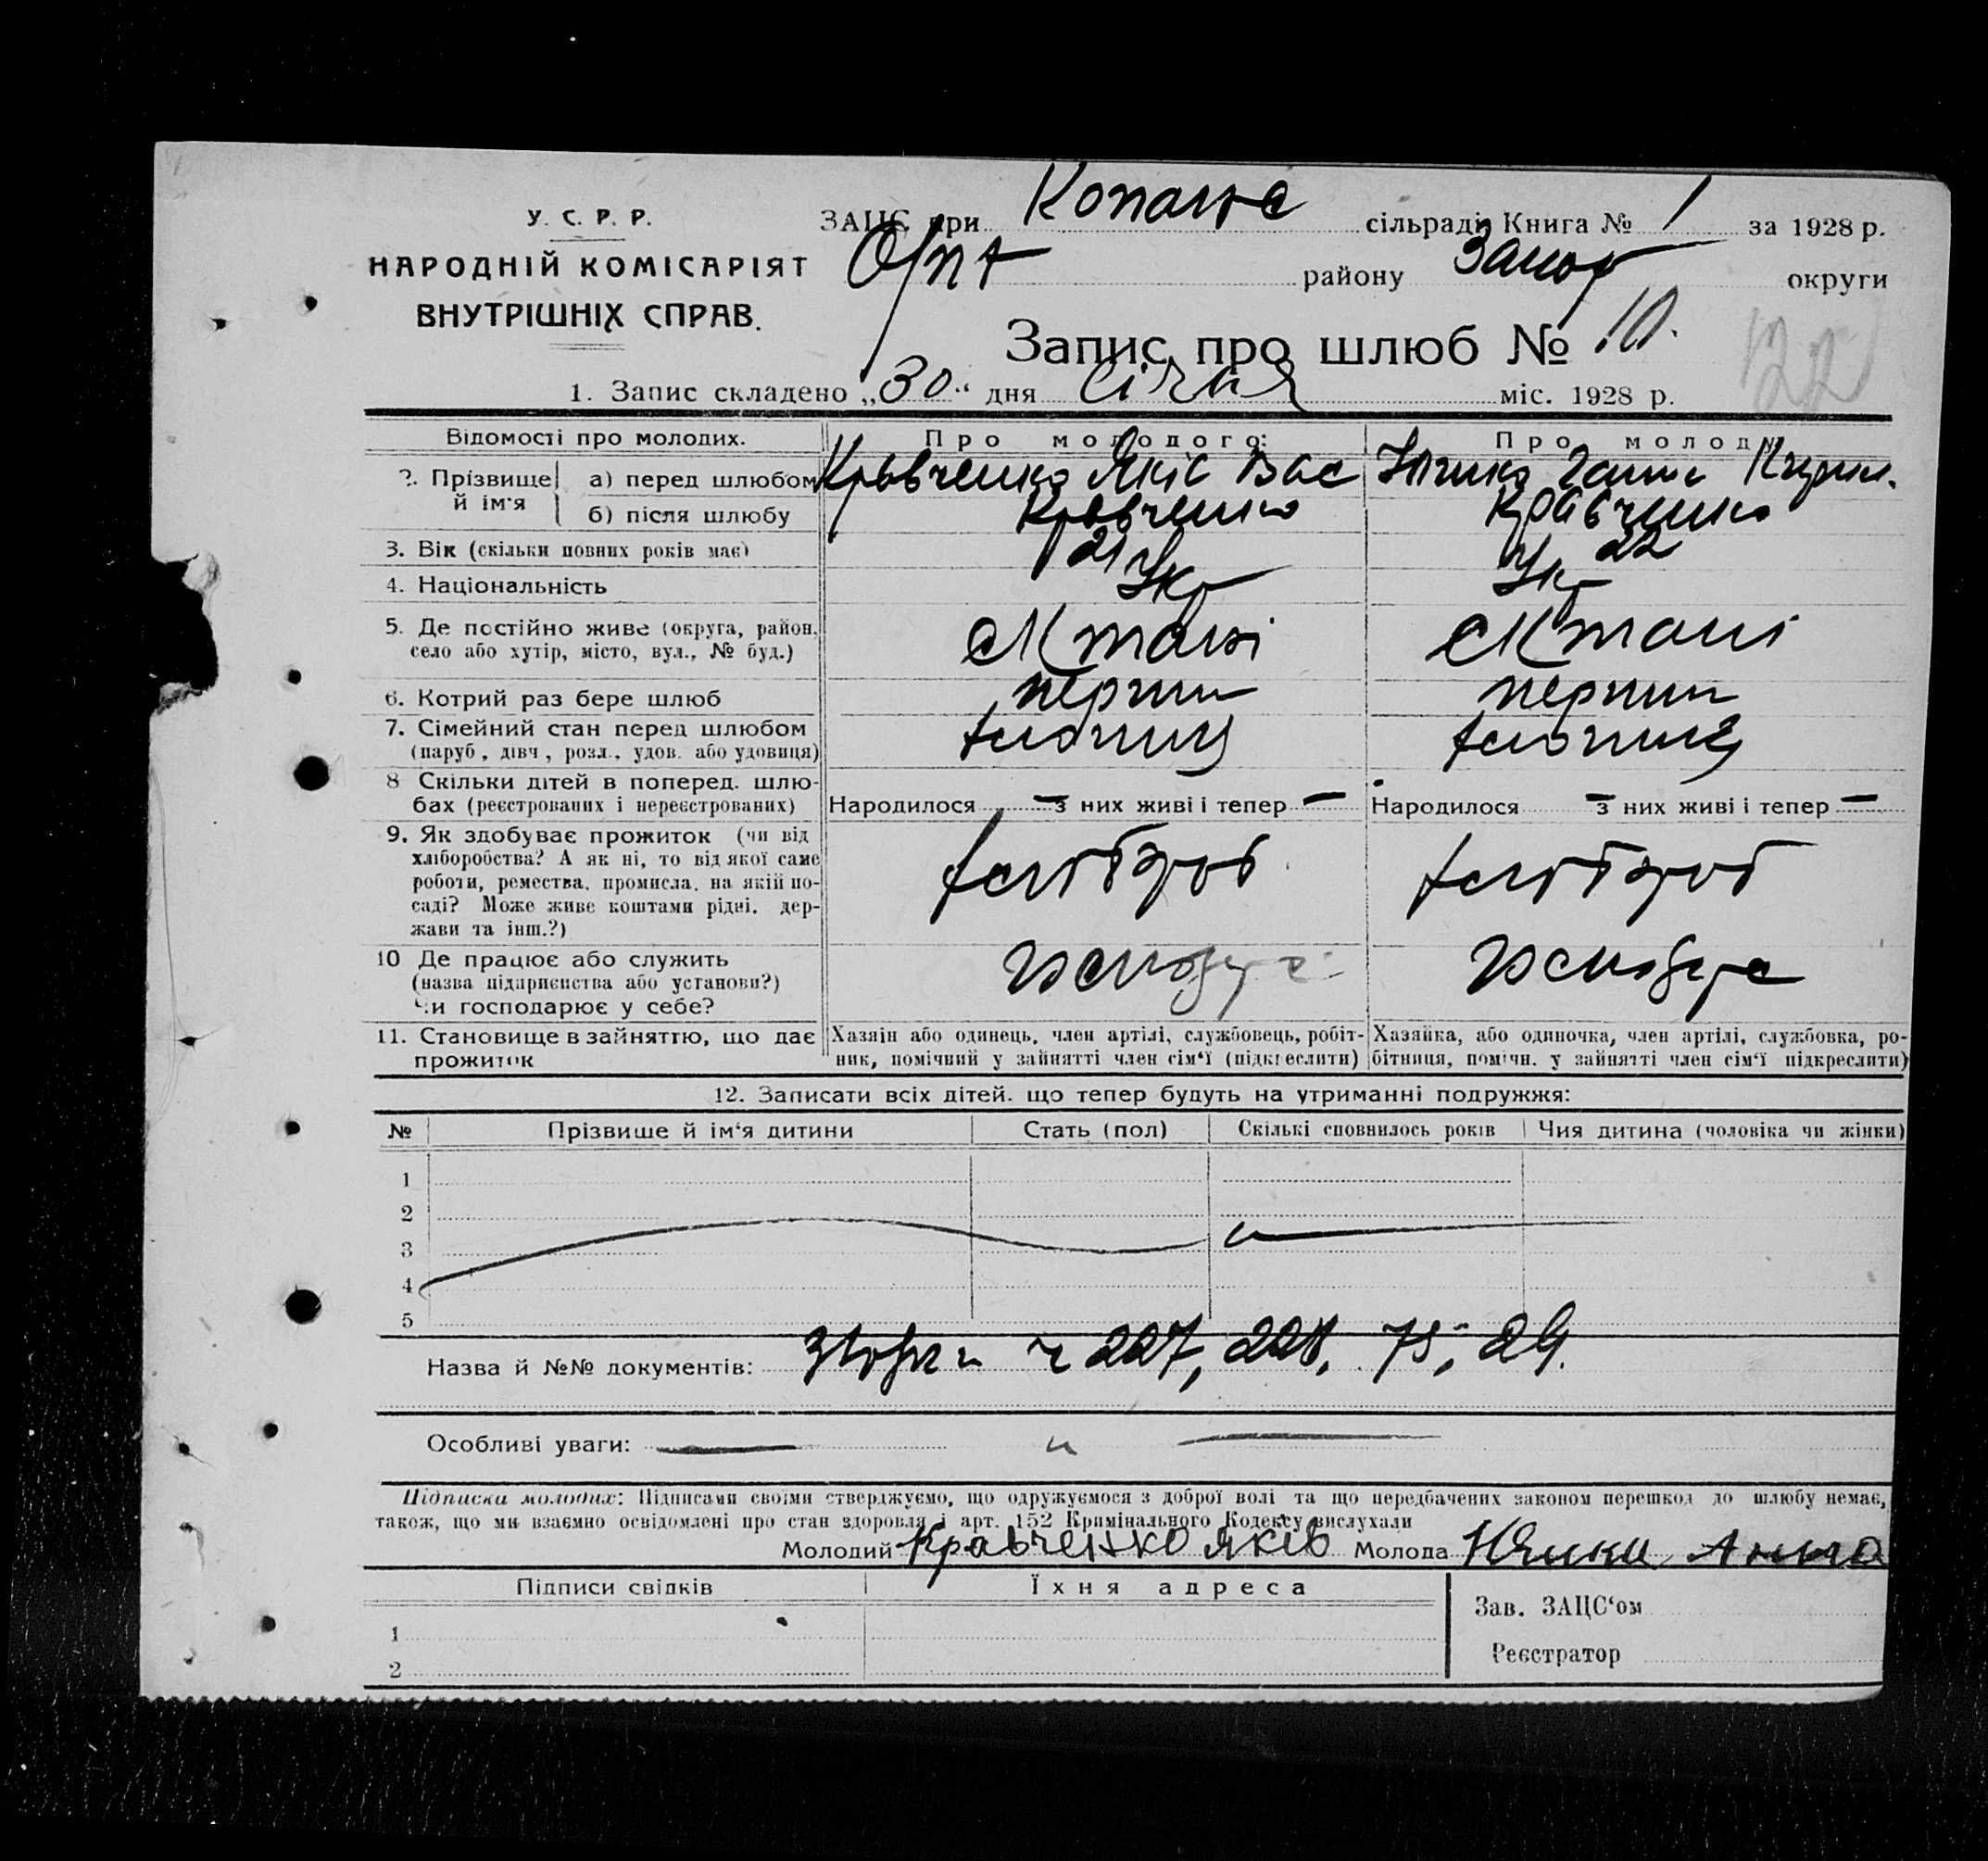 У. С. Р. Р.
НАРОДНІЙ КОМІСАРІЯТ
ВНУТРІШНІХ СПРАВ.
ЗАЦС при Копанс сільраді Книга № 1 за 1928 р.
Оріх району Запор округи
Запис про шлюб № 10.
122
1. Запис складено „30“ дня Січня міс. 1928 р.
Відомості про молодих. Про молодого: Про молоду
2. Прізвище й ім'я а) перед шлюбом Кравченко Яків Вас
б) після шлюбу Кравченко Кравченко
3. Вік (скільки повних років має) 21 22
4. Національність Укр Укр
5. Де постійно живе (округа, район,
село або хутір, місто, вул., № буд.)
6. Котрий раз бере шлюб перший перший
7. Сімейний стан перед шлюбом
(паруб , дівч , розл., удов. або удовиця)
8 Скільки дітей в поперед. шлю-
бах (реєстрованих і нереєстрованих) Народилося – з них живі і тепер – Народилося – з них живі і тепер –
9. Як здобуває прожиток (чи від
хліборобства? А як ні, то від якої саме
роботи, ремества, промисла, на якій по-
саді? Може живе коштами рідні, дер-
жави та інш.?)
хлібороб хлібороб
10 Де працює або служить
(назва підприємства або установи?)
Чи господарює у себе?
11. Становище в зайняттю, що дає
прожиток
Хазяїн або одинець, член артілі, службовець, робіт-
ник, помічний у зайнятті член сім'ї (підкреслити)
Хазяйка, або одиночка, член артілі, службовка, ро-
бітниця, помічн. у зайнятті член сім'ї підкреслити)
12. Записати всіх дітей. що тепер будуть на утриманні подружжя:
№ Прізвище й ім'я дитини Стать (пол) Скількі сповнилось років Чия дитина (чоловіка чи жінки)
1
2
3
4
5
Назва й №№ документів: ч 227, 228, 75, 29.
Особливі уваги:
Підписка молодих: Підписами своїми стверджуємо, що одружуємося з доброї волі та що передбачених законом перешкод до шлюбу немає,
також, що ми взаємно освідомлені про стан здоровля і арт. 152 Кримінального Кодексу вислухали
Молодий Кравченко Яків Молода
Підписи свідків Їхня адреса
1
2
Зав. ЗАЦС'ом
Реєстратор